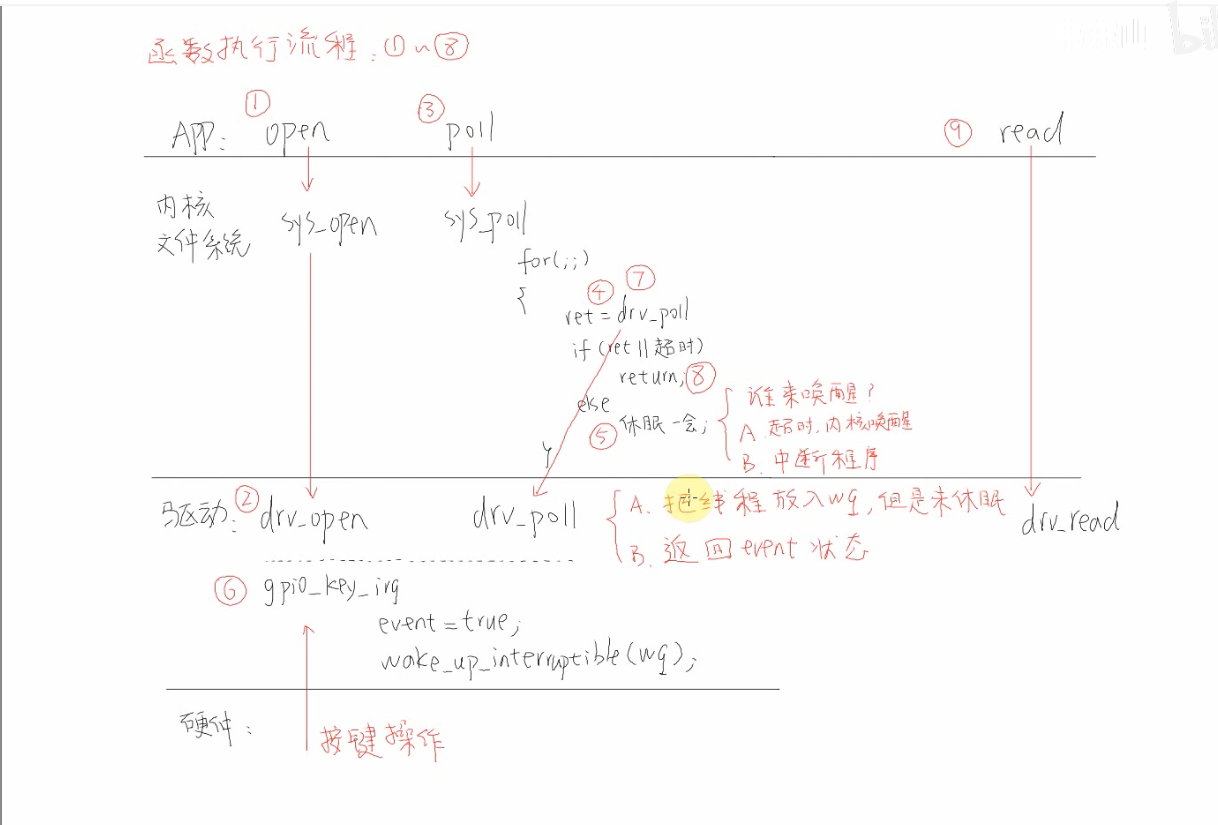 函数执行流程:①~⑧
① ③
APP: open poll ⑨ read
内核
文件系统 sys_open sys_poll
for(;;)
{
④ ⑦
ret = drv_poll
if (ret || 超时)
return; ⑧
else
⑤ 休眠一会;
谁来唤醒?
A. 超时,内核唤醒
B. 中断程序
y
驱动: ② drv_open drv_poll drv_read
A. 把线程放入wq,但是未休眠
B. 返回event状态
⑥ gpio_key_irq
event = true;
wake_up_interruptible(wq);
硬件:
按键操作